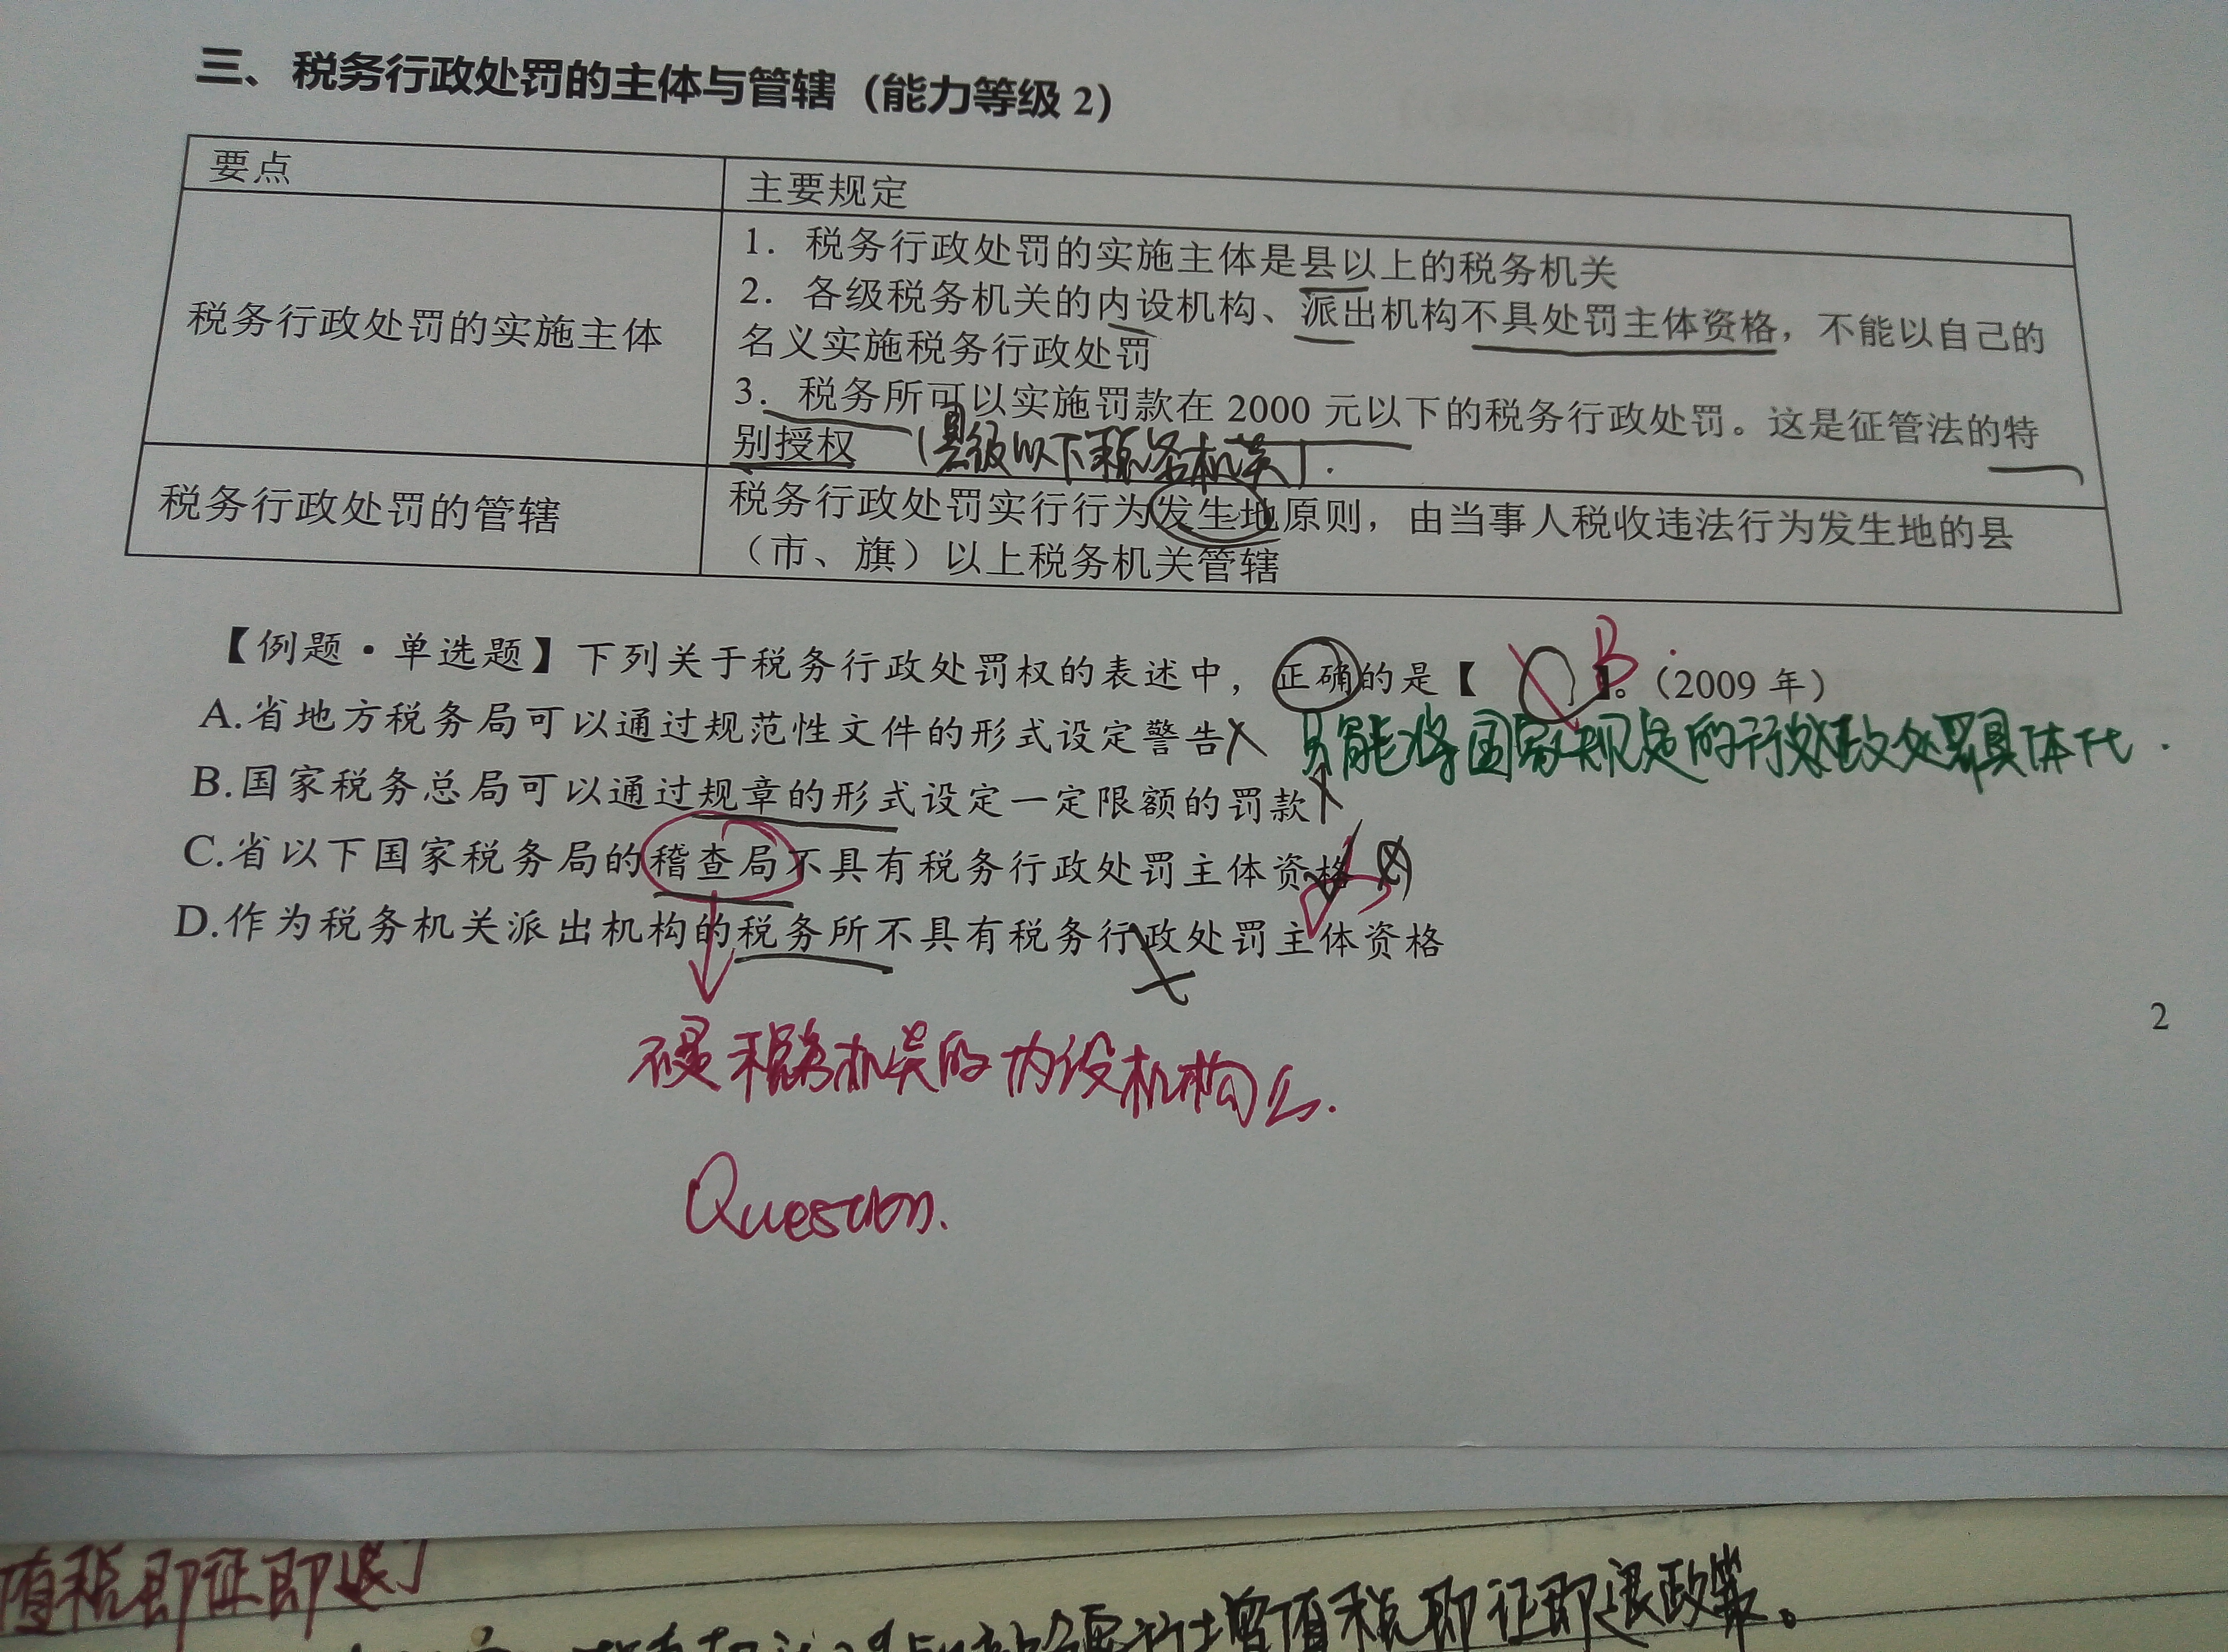 三、税务行政处罚的主体与管辖（能力等级 2）
要点
主要规定
税务行政处罚的实施主体
1．税务行政处罚的实施主体是县以上的税务机关
2．各级税务机关的内设机构、派出机构不具处罚主体资格，不能以自己的
名义实施税务行政处罚
3．税务所可以实施罚款在 2000 元以下的税务行政处罚。这是征管法的特
别授权（县级以下税务机关）.
税务行政处罚的管辖
税务行政处罚实行行为发生地原则，由当事人税收违法行为发生地的县
（市、旗）以上税务机关管辖
【例题·单选题】下列关于税务行政处罚权的表述中，正确的是【 B 】。（2009 年）
A.省地方税务局可以通过规范性文件的形式设定警告
只能将国家规定的行政处罚具体化.
B.国家税务总局可以通过规章的形式设定一定限额的罚款
C.省以下国家税务局的稽查局不具有税务行政处罚主体资格
D.作为税务机关派出机构的税务所不具有税务行政处罚主体资格
2
不是税务机关的内设机构么.
Question.
值税即征即退
增值税即征即退政策。